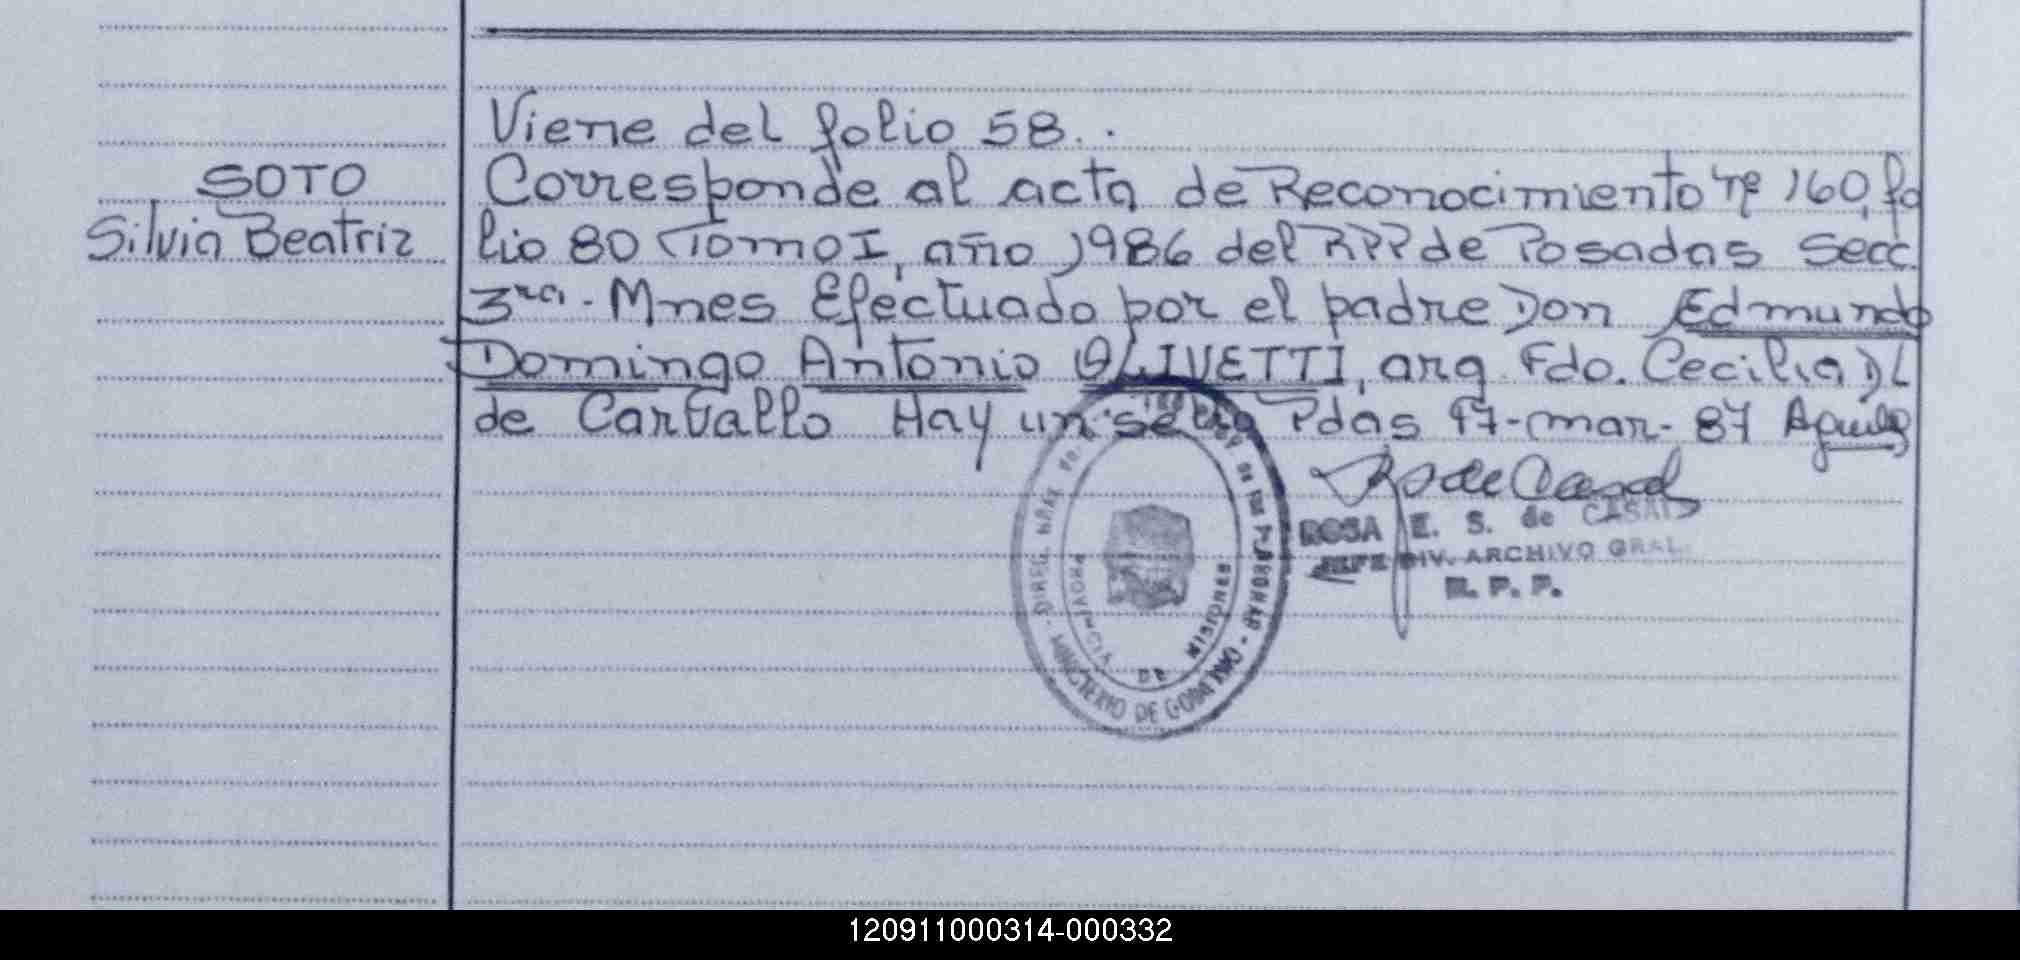 Viene del folio 58..
SOTO
Silvia Beatriz
Corresponde al acta de Reconocimiento nº 160, fo
lio 80 Tomo I, año 1986 del RPP de Posadas Secc.
3ra. Mnes Efectuado por el padre Don Edmundo
Domingo Antonio OLIVETTI, arg. Fdo. Cecilia DL
de Carvallo Hay un sello Pdas 17-mar-87
ROSA E. S. de CASALS
JEFE DIV. ARCHIVO GRAL.
R. P. P.
PROVINCIA DE MISIONES
MINISTERIO DE GOBIERNO
120911000314-000332